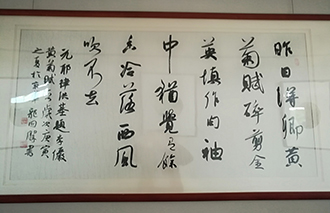 昨日得卿黄
菊赋碎剪金
英填作句袖
中犹觉有余
香冷落西风
吹不去
元耶律洪基题李俨
黄菊赋
岁次庚寅